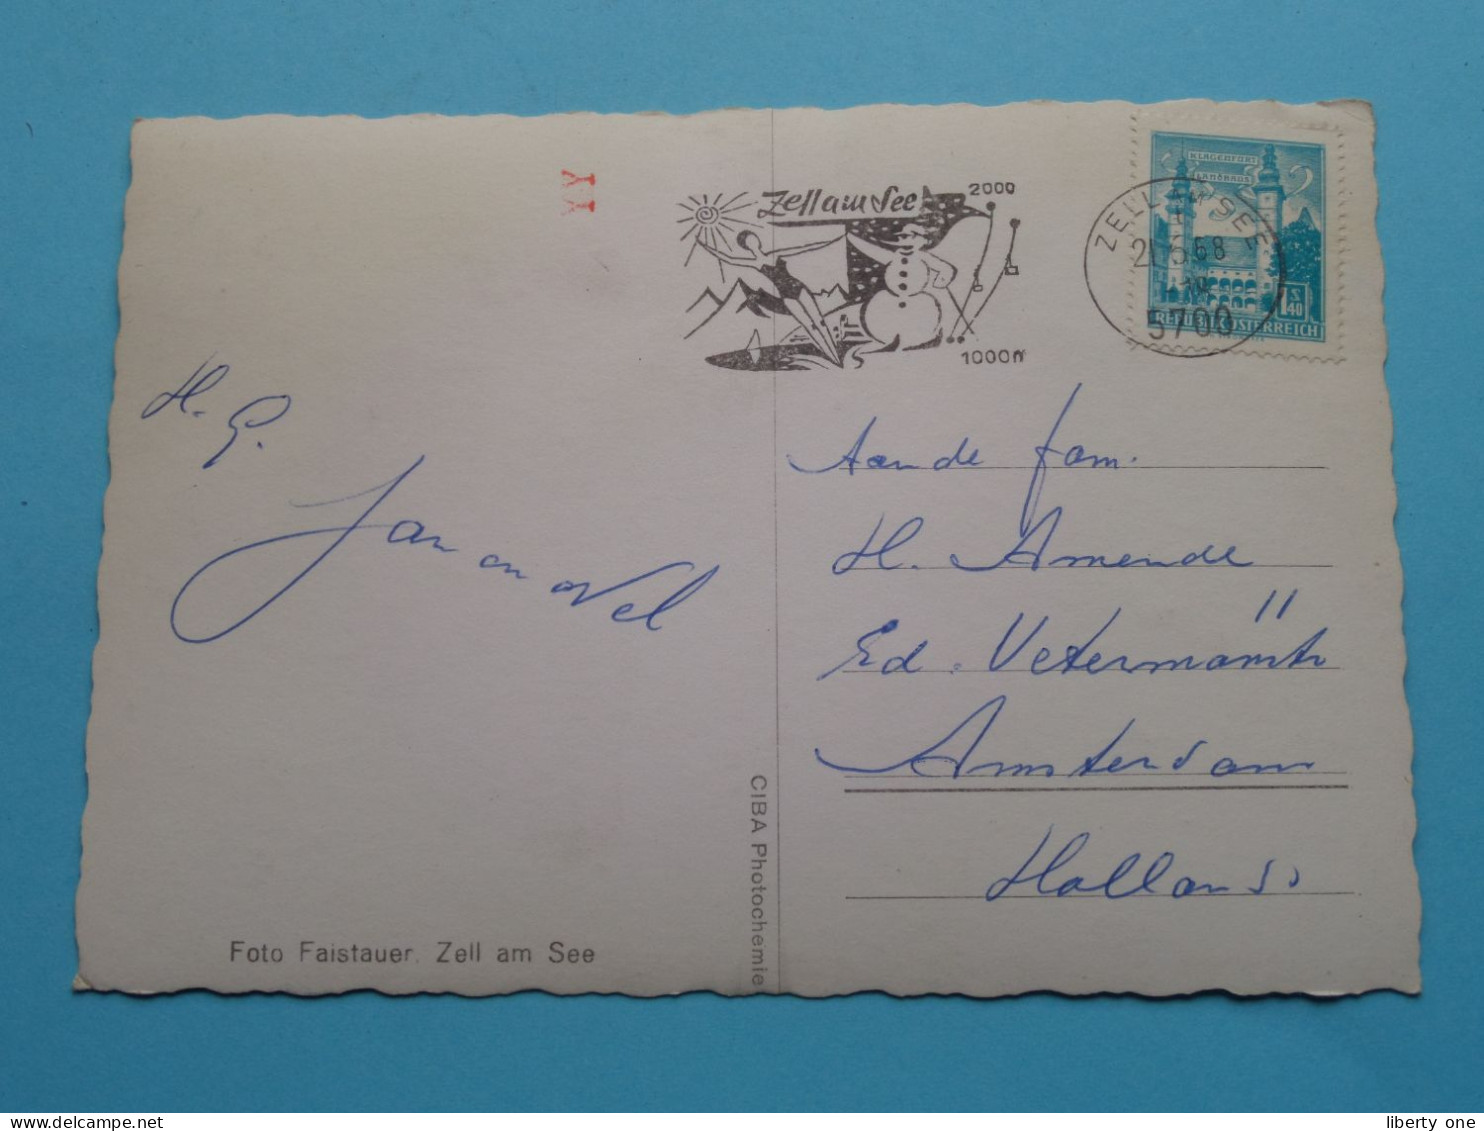 YY
Zell am See
2000
1000m
ZELL AM SEE
21.5.68
5700
KLAGENFURT
LANDHAUS
S 1.40
REPUBLIK ÖSTERREICH
H. G.
Jan en Nel
Aan de fam.
H. Amende
Ed.
11
Amsterdam
Holland
CIBA Photochemie
Foto Faistauer. Zell am See
liberty one